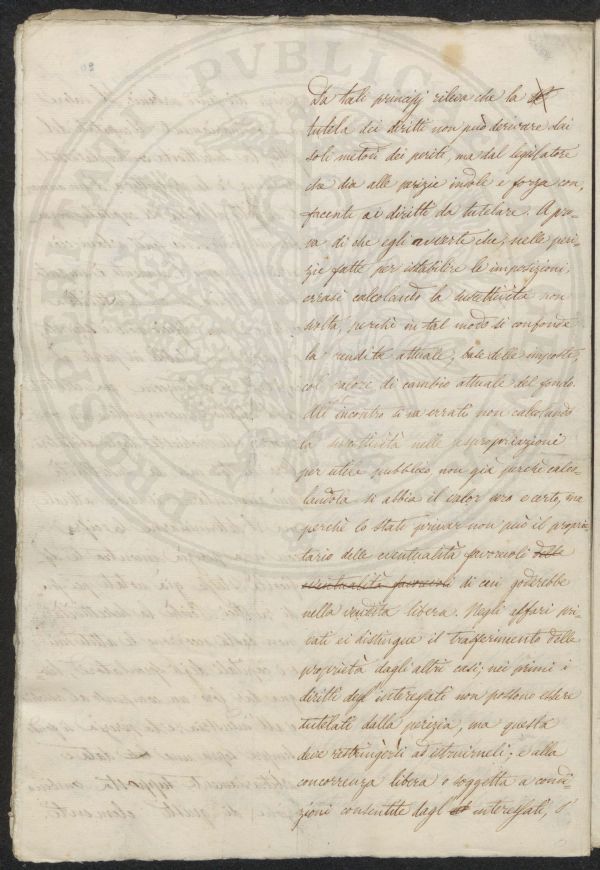 Da tali principj rileva che la
tutela dei diritti non può derivare dai
soli metodi dei periti, ma dal legislatore
che dia alle perizie indole e forza con,
facente ai diritti da tutelare. A pro-
va di che egli avverte che, nelle peri-
zie fatte per istabilire le imposizioni,
errasi calcolando la suscettività non
svolta, perchè in tal modo si confonde
la rendita attuale, base delle imposte,
col valore di cambio attuale del fondo.
All'incontro si va errati non calcolando
la suscettività nelle espropriazioni
per utile pubblico non già perchè calco-
landola si abbia il valor vero e certo, ma
perchè lo Stato privar non può il proprie-
tario delle eventualità favorevoli delle
eventualità favorevoli di cui godrebbe
nella vendita libera. Negli affari pri-
vati ei distingue il trasferimento delle
proprietà dagli altri casi; nei primi i
diritti degl'interessati non possono essere
tutelati dalla perizia, ma questa
deve restringersi ad istruirneli; e alla
concorrenza libera o soggetta a condi-
zioni consentite dagl' interessati, s'